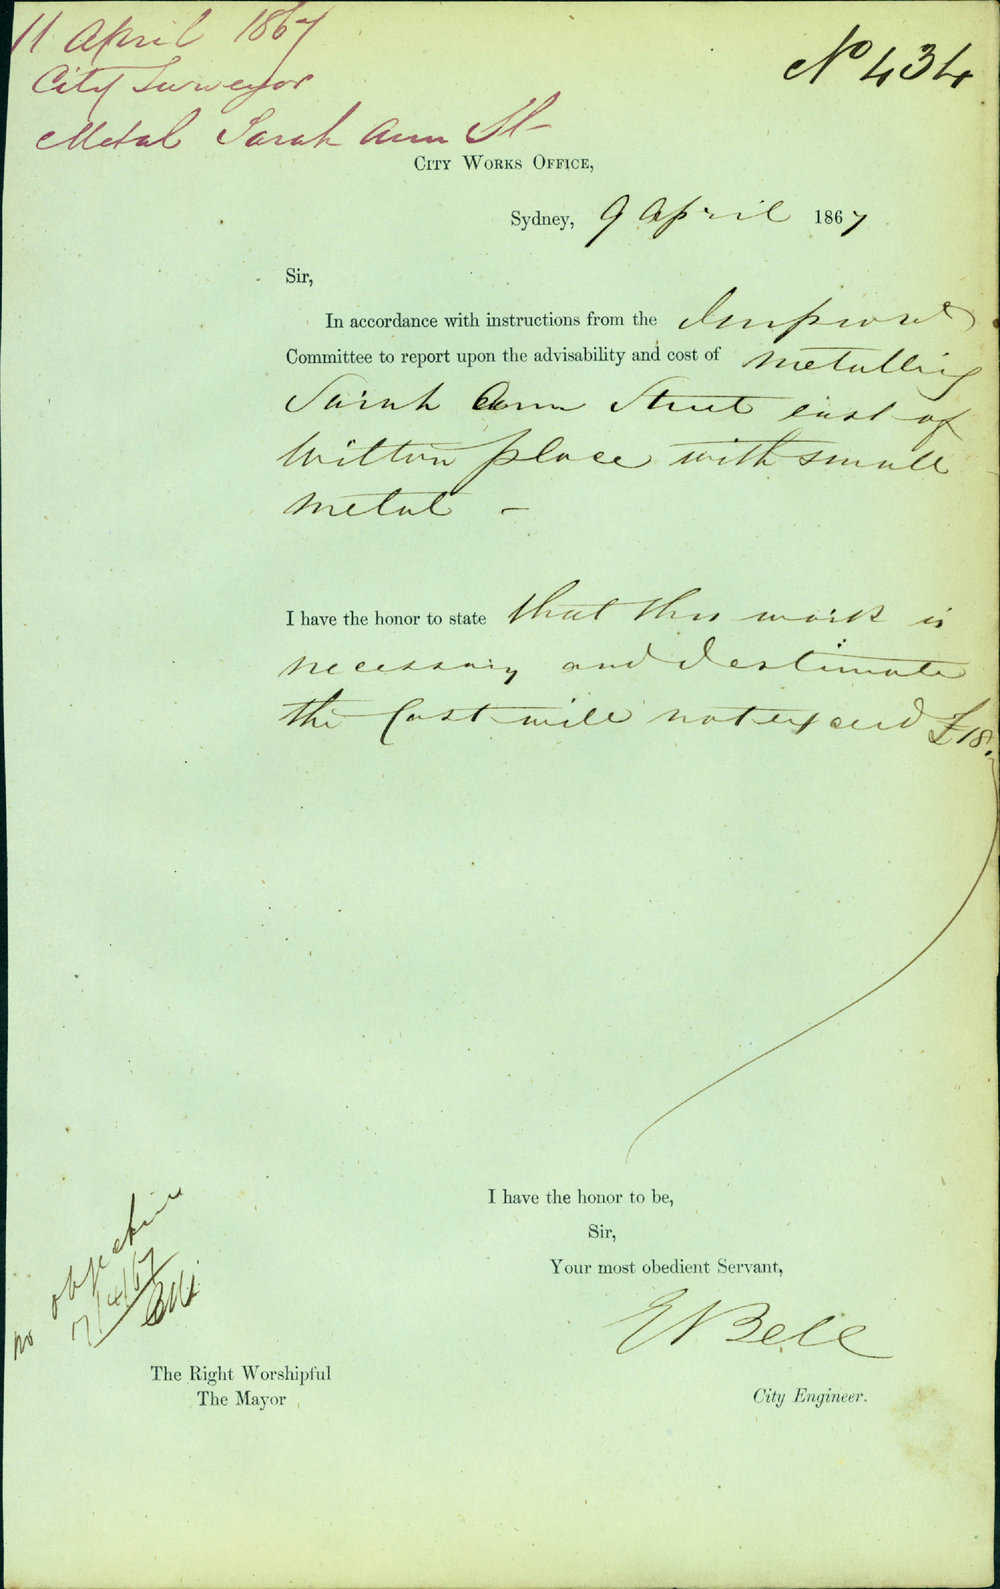 11 April 1867
City Surveyor
Metal Sarah Ann St
No 434
City Works Office,
Sydney, 9 April 1867
Sir,
In accordance with instructions from the Improvt
Committee to report upon the advisability and cost of metalling
Sarah Ann Street east of
Wilton place with small
metal -
I have the honor to state that this work is
necessary and I estimate
the Cost will not exceed £18.
I have the honor to be,
Sir,
Your most obedient Servant,
E Bell
City Engineer.
no objection
/4/67
The Right Worshipful
The Mayor